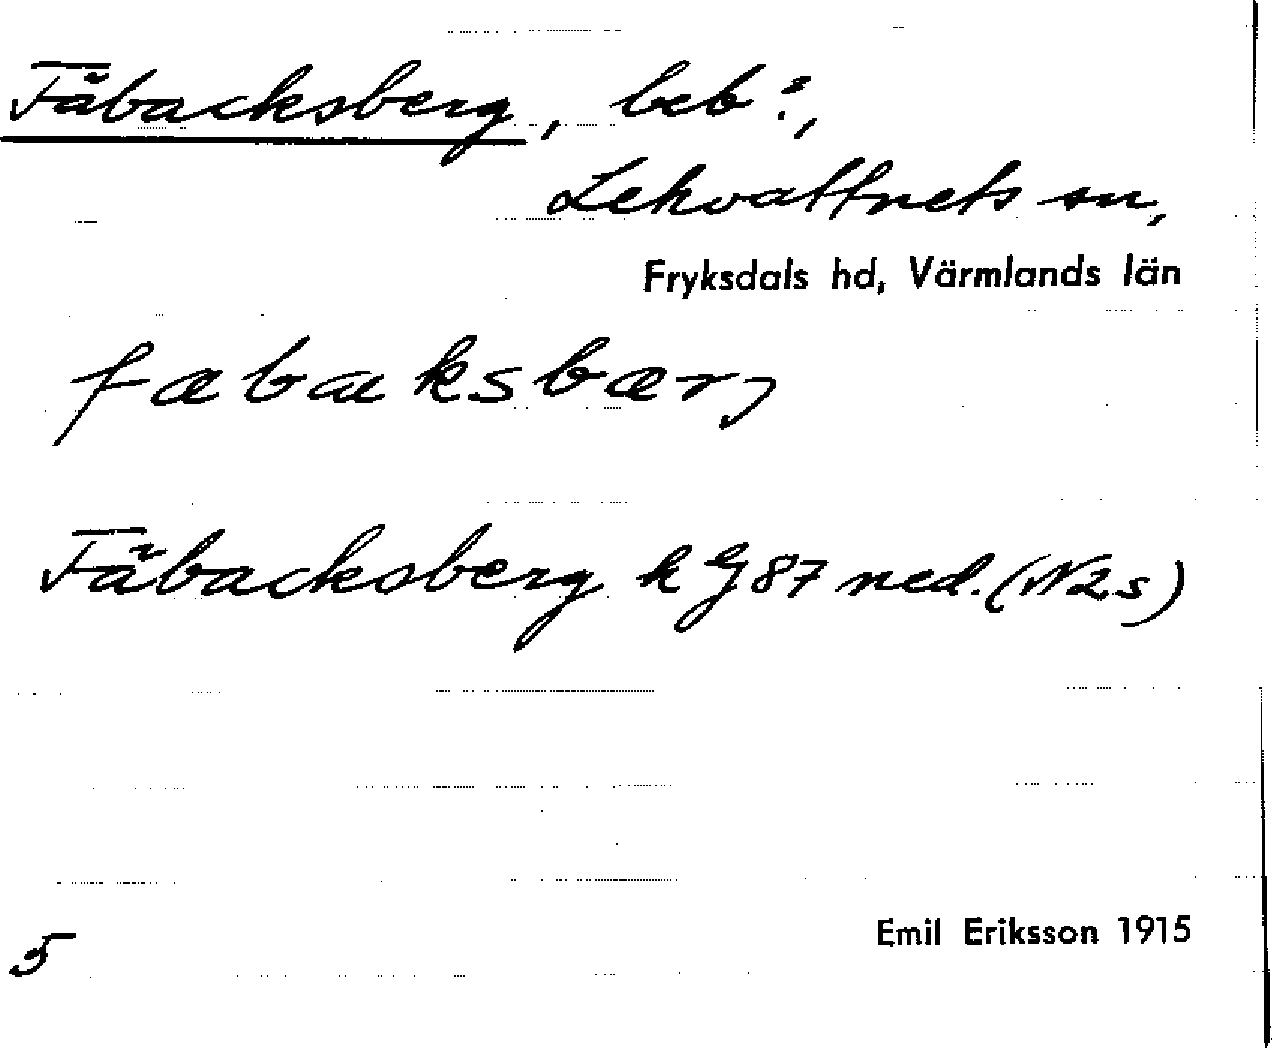 Fäbacksberg, beb?,
Lekvattnets sn,
Fryksdals hd, Värmlands län
fæbaksbærj
Fäbacksberg k G87 ned. (N2s)
5
Emil Eriksson 1915